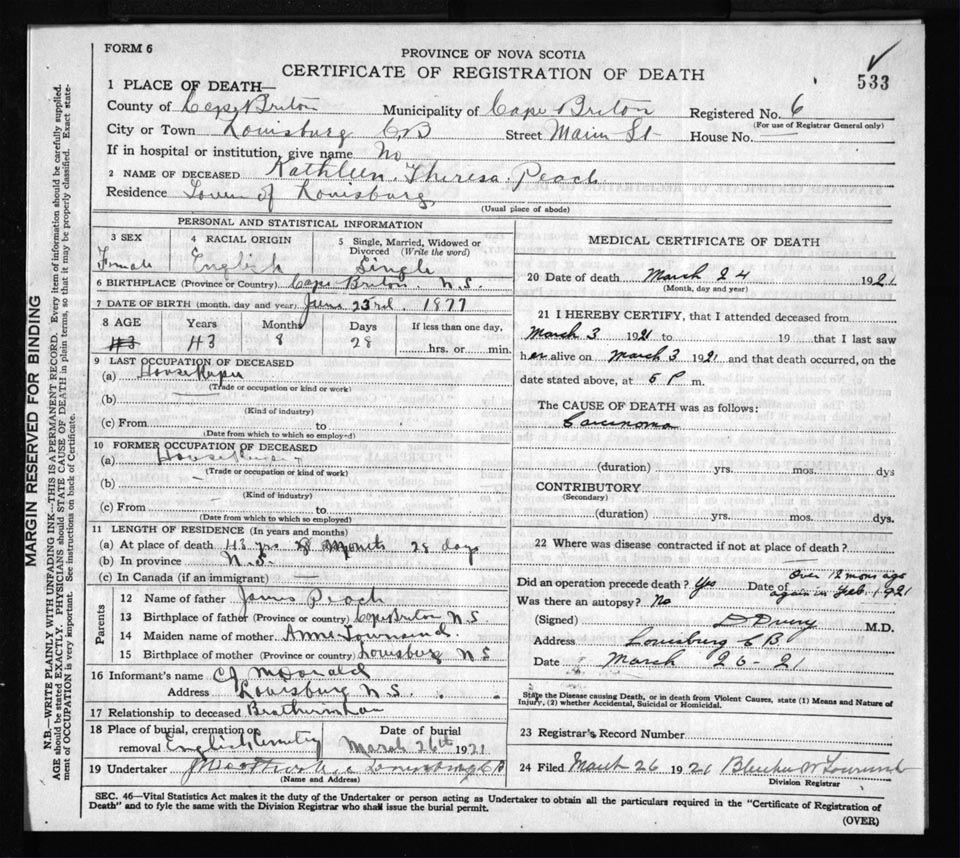 FORM 6
PROVINCE OF NOVA SCOTIA
CERTIFICATE OF REGISTRATION OF DEATH
533
1 PLACE OF DEATH—
County of Cape Briton Municipality of Cape Briton Registered No. 6
(For use of Registrar General only)
City or Town Louisburg C B Street Main St House No.
If in hospital or institution, give name No
2 NAME OF DECEASED Kathleen Theresa Peach
Residence Town of Louisburg
(Usual place of abode)
PERSONAL AND STATISTICAL INFORMATION
3 SEX Female
4 RACIAL ORIGIN English
5 Single, Married, Widowed or Divorced (Write the word) Single
6 BIRTHPLACE (Province or Country) Cape Briton N.S.
7 DATE OF BIRTH (month, day and year) June 23rd 1877
8 AGE Years Months Days If less than one day,
43 43 8 28 hrs. or min.
9 LAST OCCUPATION OF DECEASED
(a) House Keeper
(Trade or occupation or kind or work)
(b)
(Kind of industry)
(c) From to
(Date from which to which so employed)
10 FORMER OCCUPATION OF DECEASED
(a)
(Trade or occupation or kind of work)
(b)
(Kind of industry)
(c) From to
(Date from which to which so employed)
11 LENGTH OF RESIDENCE (In years and months)
(a) At place of death 43 yrs 8 months 28 days
(b) In province N.S.
(c) In Canada (if an immigrant) —
Parents
12 Name of father James Peach
13 Birthplace of father (Province or country) Cape Briton N S
14 Maiden name of mother Anne Townsend
15 Birthplace of mother (Province or country) Louisburg N S
16 Informant's name C J McDonald
Address Louisburg N S.
17 Relationship to deceased
18 Place of burial, cremation or removal English Cemetry
Date of burial March 26th 1921
19 Undertaker Louisburg C B
(Name and Address)
MEDICAL CERTIFICATE OF DEATH
20 Date of death March 24 1921
(Month, day and year)
21 I HEREBY CERTIFY, that I attended deceased from
March 3 1921 to 19 that I last saw
her alive on March 3 1921 and that death occurred, on the
date stated above, at 5 P m.
The CAUSE OF DEATH was as follows:
Carcinoma
(duration) yrs. mos. dys
CONTRIBUTORY
(Secondary)
(duration) yrs. mos. dys.
22 Where was disease contracted if not at place of death?
Did an operation precede death? Yes Date of Over 12 mons ago again in Feb. 1921
Was there an autopsy? No
(Signed) M.D.
Address Louisburg C B
Date March 26-21
State the Disease causing Death, or in death from Violent Causes, state (1) Means and Nature of
Injury, (2) whether Accidental, Suicidal or Homicidal.
23 Registrar's Record Number
24 Filed March 26 1921 Townsend
Division Registrar
SEC. 46—Vital Statistics Act makes it the duty of the Undertaker or person acting as Undertaker to obtain all the particulars required in the "Certificate of Registration of
Death" and to fyle the same with the Division Registrar who shall issue the burial permit.
(OVER)
MARGIN RESERVED FOR BINDING
N.B.—WRITE PLAINLY WITH UNFADING INK—THIS IS A PERMANENT RECORD. Every item of information should be carefully supplied.
AGE should be stated EXACTLY. PHYSICIANS should STATE CAUSE OF DEATH in plain terms, so that it may be properly classified. Exact state-
ment of OCCUPATION is very important. See instructions on back of Certificate.